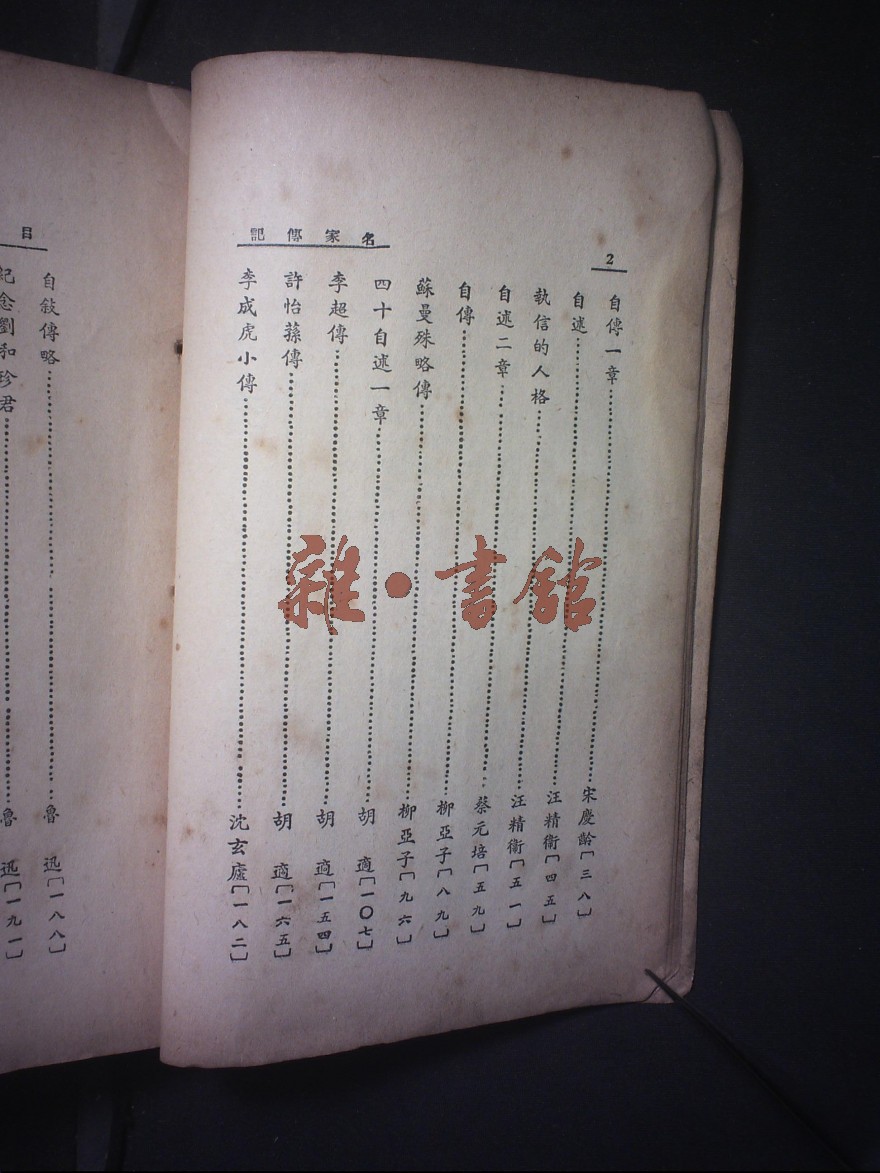 2
名家傳記
自傳一章……宋慶齡[三八]
自述……汪精衞[四五]
執信的人格……汪精衞[五一]
自述二章……蔡元培[五九]
自傳……柳亞子[八九]
蘇曼殊略傳……柳亞子[九六]
四十自述一章……胡適[一〇七]
李超傳……胡適[一五四]
許怡蓀傳……胡適[一六五]
李成虎小傳……沈玄廬[一八二]
目
自敍傳略……魯迅[一八八]
紀念劉和珍君……魯迅[一九一]
雜·書館